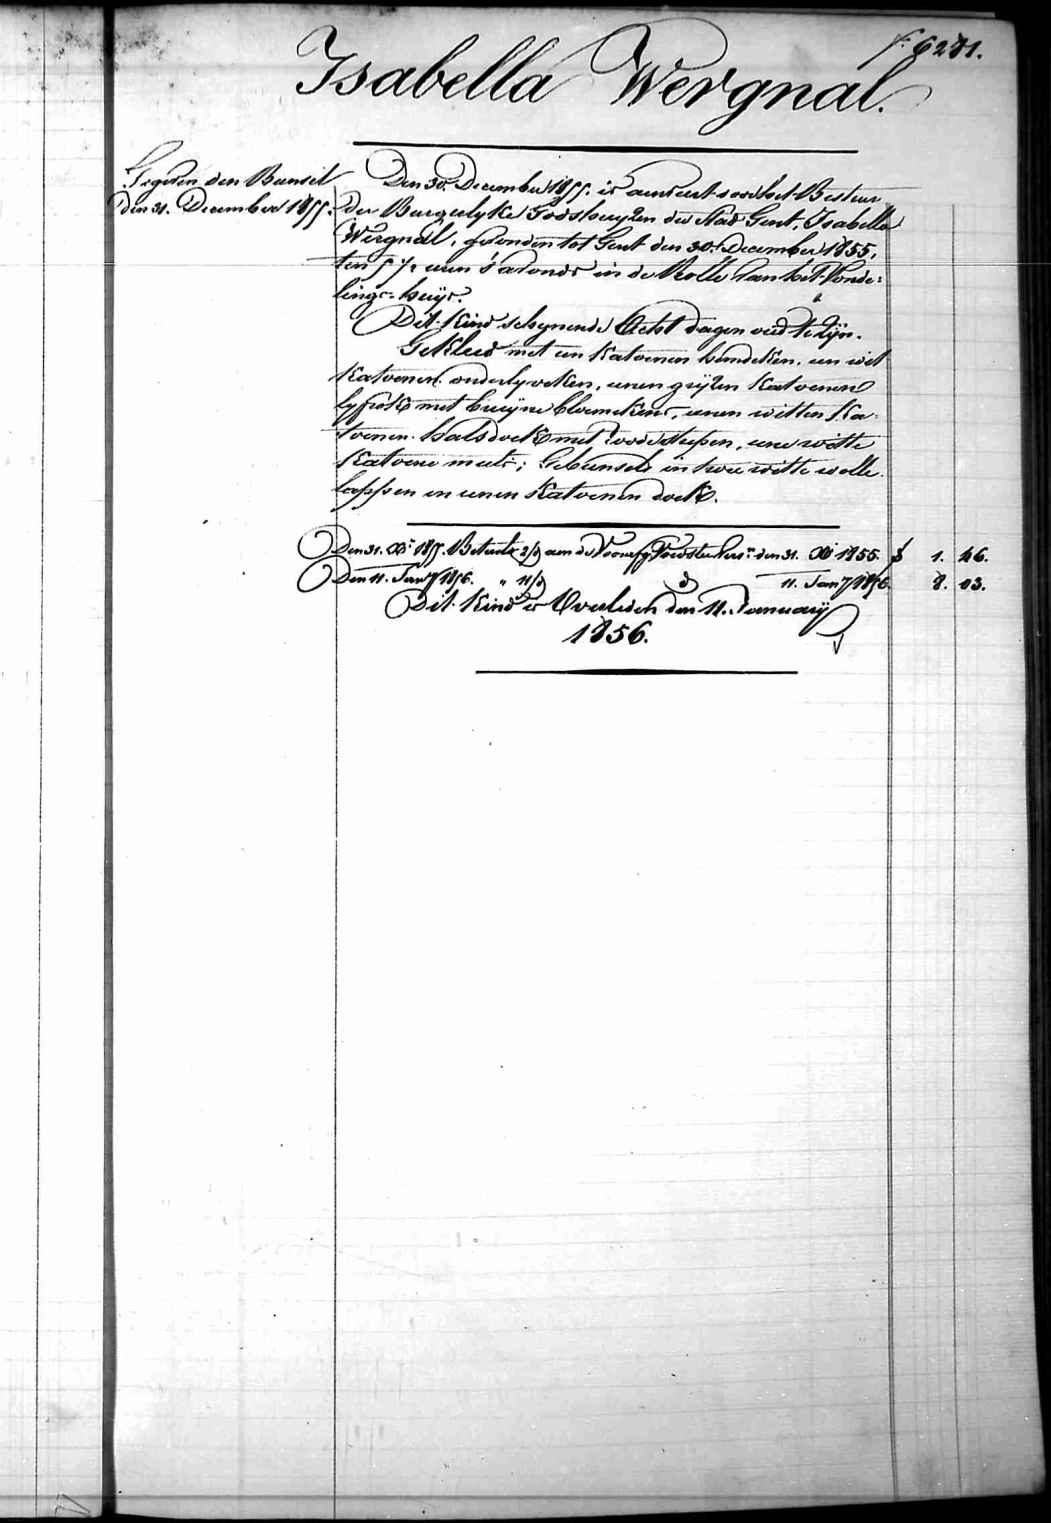 f. 6281.
Isabella Wergnal.
Gegeven den Bunsel
den 31. December 1855.
Den 30. December 1855. is aenveert door het Bestuur
der Burgerlyke Godshuyzen der Stad Gent, Isabella
Wergnal, gevonden tot Gent den 30. December 1855,
ten 5 ½ uren 's avonds in de Rolle van het Vonde-
lings-huys.
Dit Kind schynende Acht dagen oud te zyn.
Gekleed met een Katoenen hemdeken, een wit
Katoenen onderlyveken, eenen gryzen Katoenen
lyfrok met bruyne bloemekens, eenen witten Ka-
toenen halsdoek met roode stepen, eene witte
Katoene muts; Gebunseld in twee witte wolle
lappen en eenen Katoenen doek.
Den 31. Xbr 1855. Betaelt 2/d aen de Voorsz. den 31. Xbr 1855. f 1. 46.
Den 11. Jany 1856. " 11/d d° 11. Jany 1856. 8. 03.
Dit Kind is Overleden den 11. January
1856.